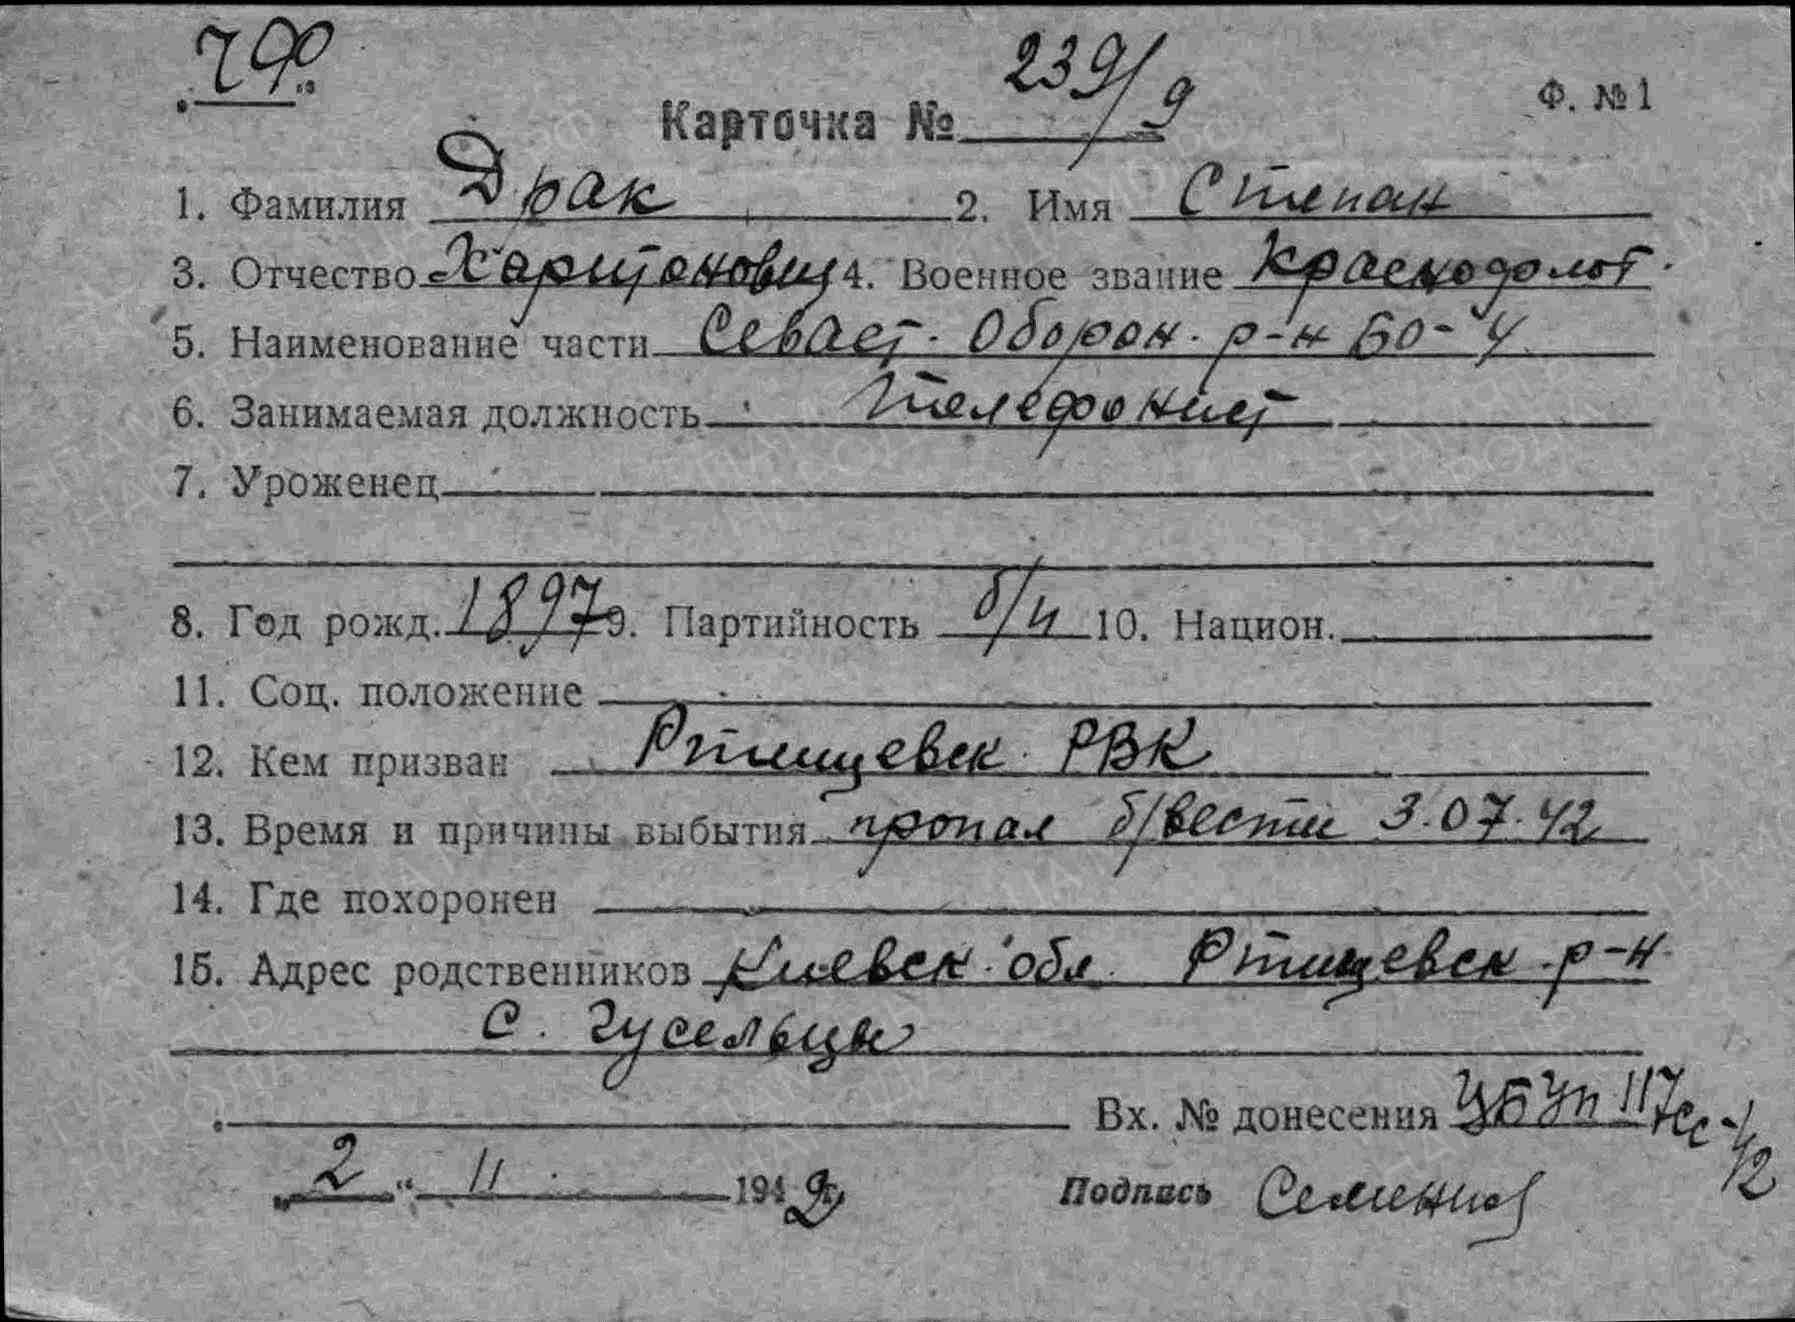 790
Карточка № 239/9 Ф. № 1
1. Фамилия Драк 2. Имя Степан
3. Отчество Харитонович 4. Военное звание Краснофлот.
5. Наименование части Севаст. Оборон. р-н БО-4
6. Занимаемая должность Телефонист
7. Уроженец
8. Год рожд. 1897 9. Партийность б/п 10. Национ.
11. Соц. положение
12. Кем призван Ртищевск РВК
13. Время и причины выбытия пропал б/вести 3.07.42
14. Где похоронен
15. Адрес родственников Киевск. обл. Ртищевск. р-н
с. Гусельцы
Вх. № донесения ЦБУп 117сс-42
„2“ 11 1942
Подпись